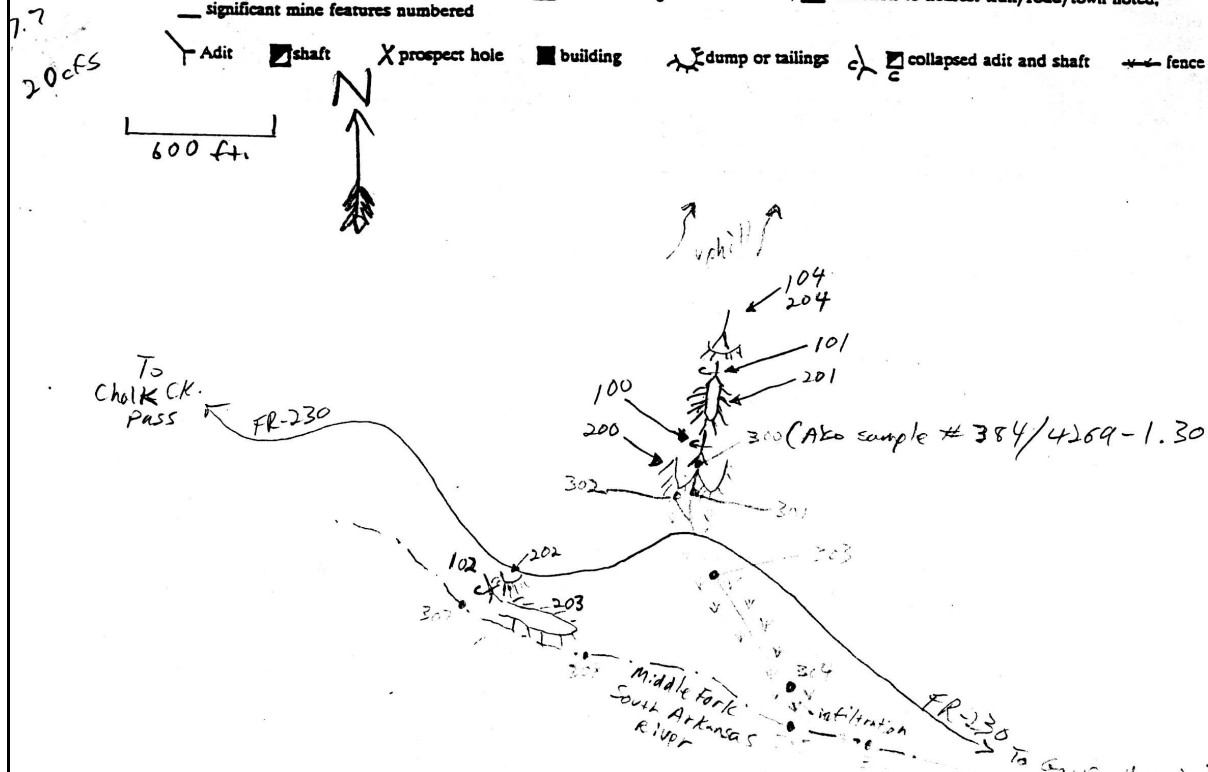 significant mine features numbered
7.7
20cfs
Adit shaft X prospect hole building dump or tailings collapsed adit and shaft fence
C
C
N
600 ft.
uphill
104
204
101
201
100
200
300 (Also sample # 384/4269-1.30
302
301
303
To
Chalk CK.
Pass
FR-230
102
202
203
304
infiltration
Middle Fork
South Arkansas
River
FR-230
To